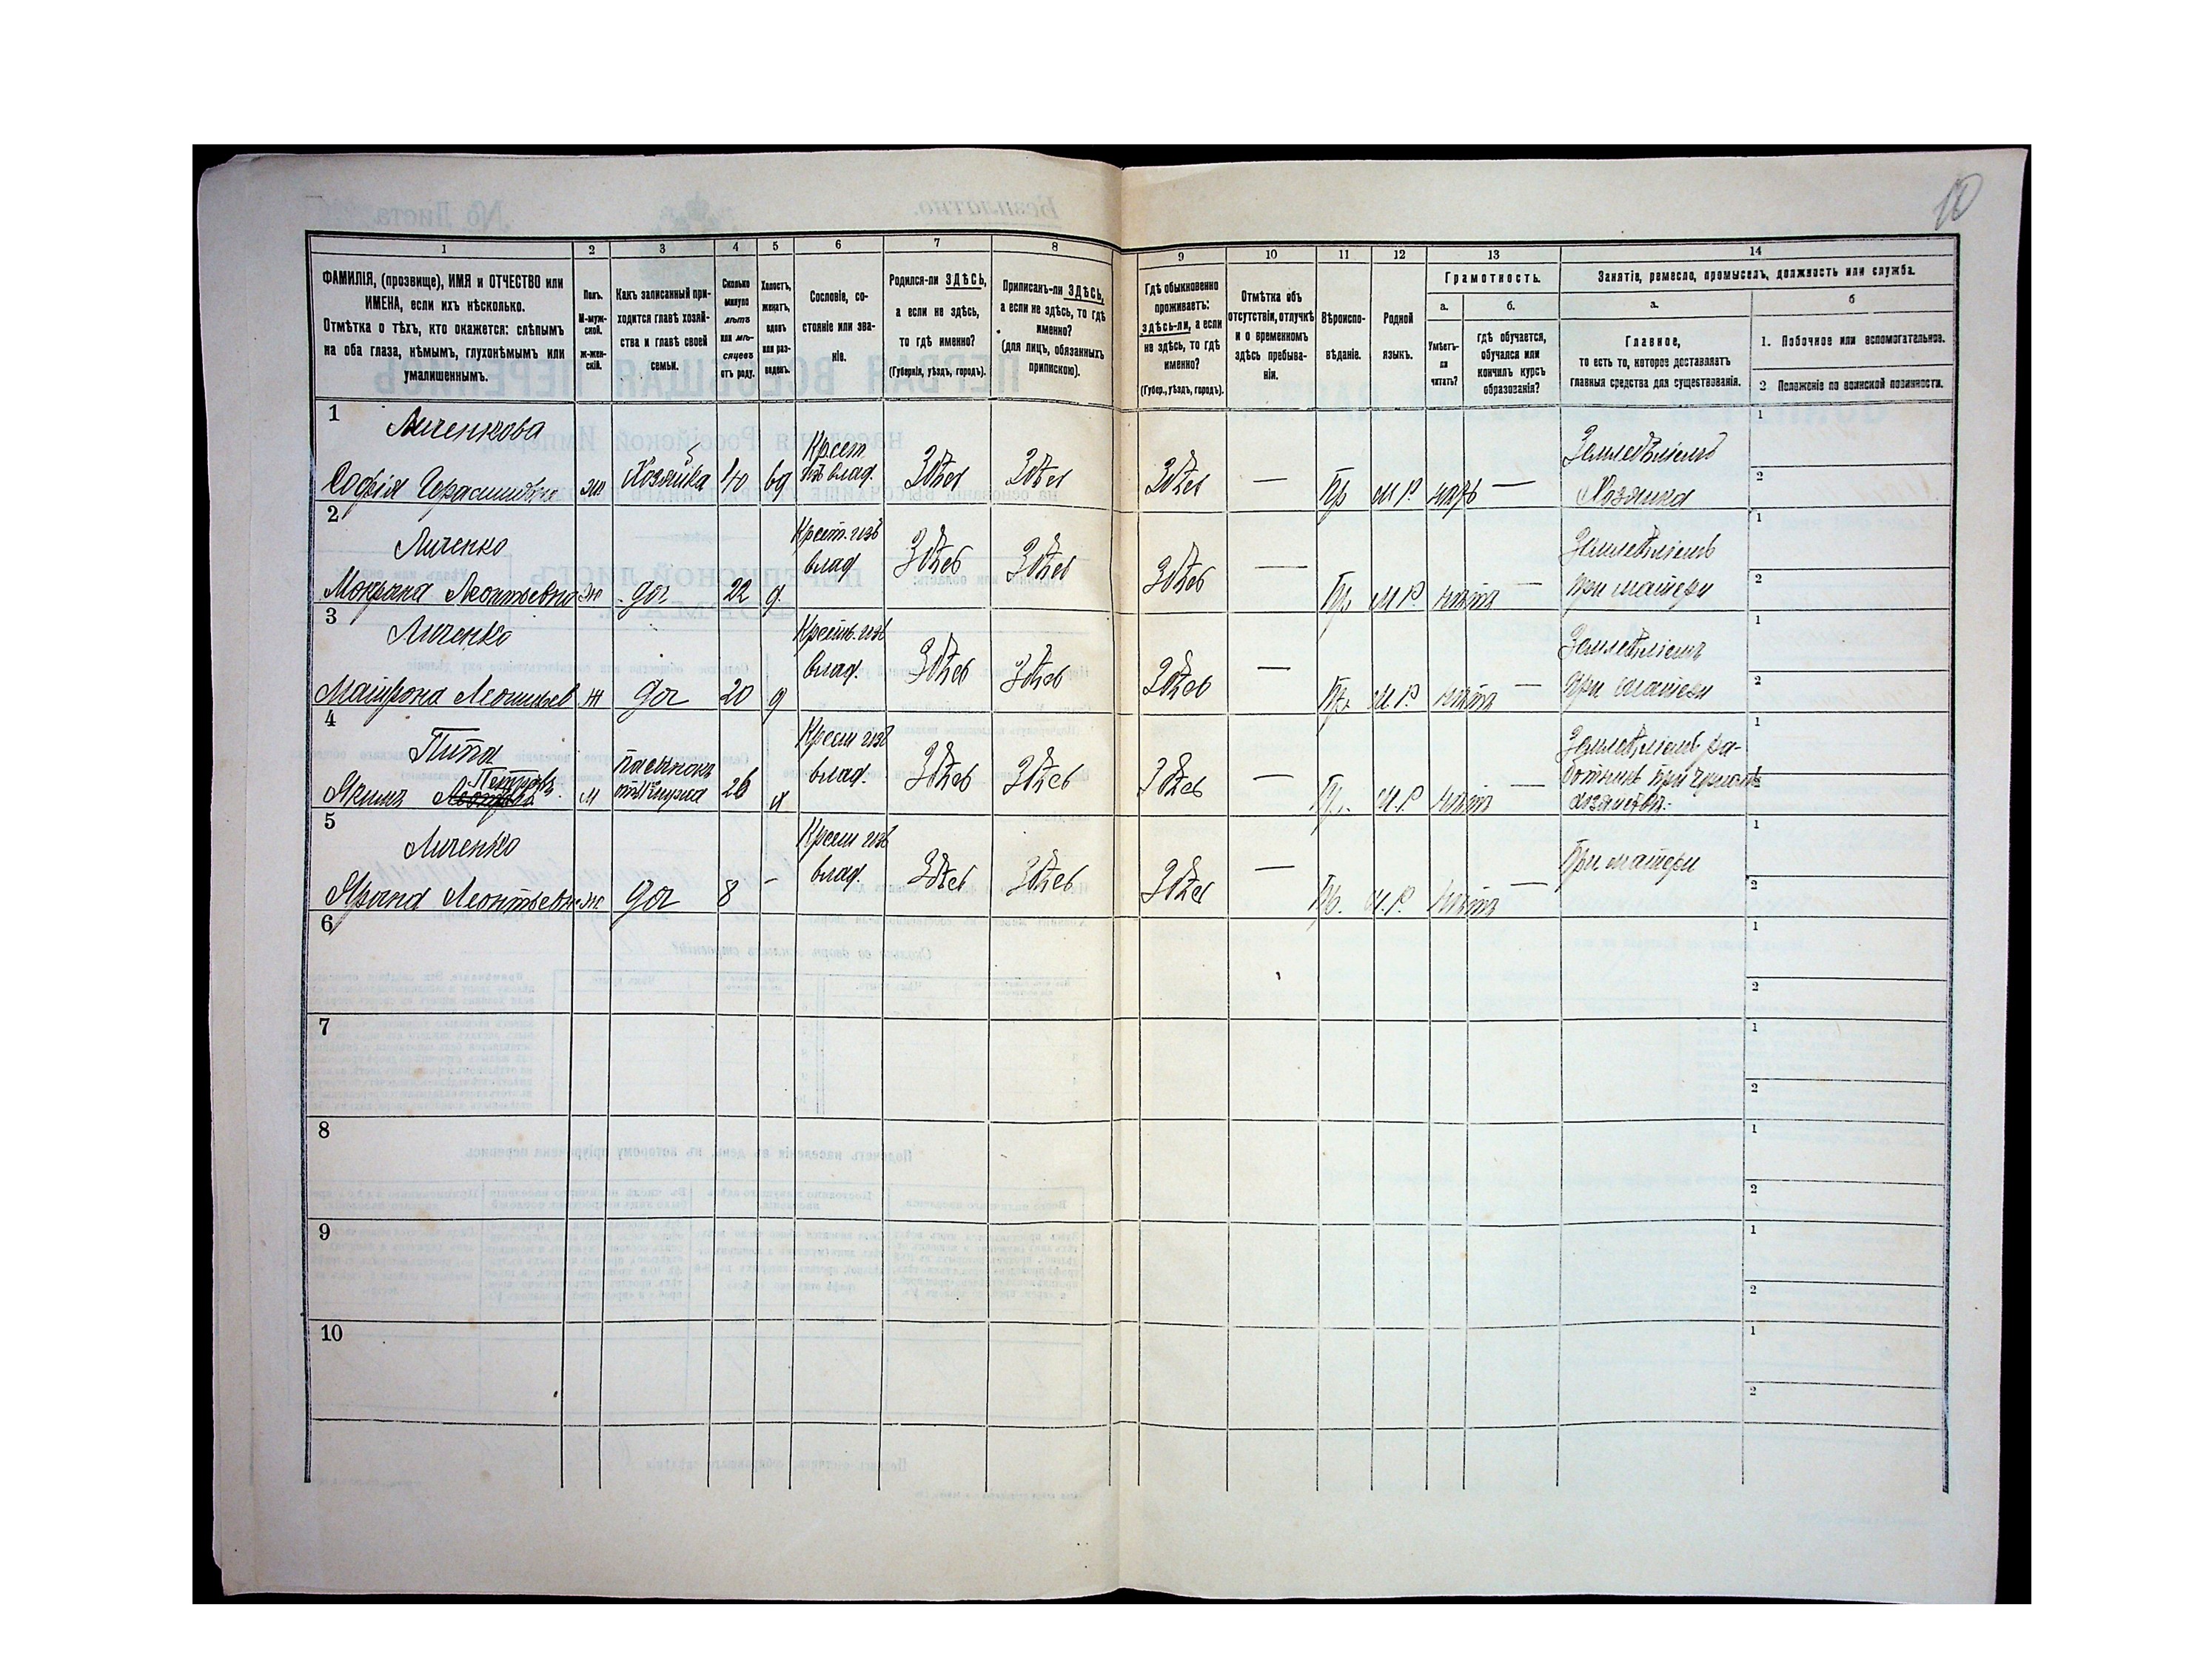 10
1 2 3 4 5 6 7 8 9 10 11 12 13 14
ФАМИЛІЯ, (прозвище), ИМЯ и ОТЧЕСТВО или
ИМЕНА, если ихъ нѣсколько.
Отмѣтка о тѣхъ, кто окажется: слѣпымъ
на оба глаза, нѣмымъ, глухонѣмымъ или
умалишеннымъ.
Полъ.
М-муж-
ской.
ж-жен-
скій.
Какъ записанный при-
ходится главѣ хозяй-
ства и главѣ своей
семьи.
Сколько
минуло
лѣтъ
или мѣ-
сяцевъ
отъ роду.
Холостъ,
женатъ,
вдовъ
или раз-
веденъ.
Сословіе, со-
стояніе или зва-
ніе.
Родился-ли ЗДѢСЬ,
а если не здѣсь,
то гдѣ именно?
(Губернія, уѣздъ, городъ).
Приписанъ-ли ЗДѢСЬ,
а если не здѣсь, то гдѣ
именно?
(для лицъ, обязанныхъ
припискою).
Гдѣ обыкновенно
проживаетъ:
здѣсь-ли, а если
не здѣсь, то гдѣ
именно?
(Губер., уѣздъ, городъ).
Отмѣтка объ
отсутствіи, отлучкѣ
и о временномъ
здѣсь пребыва-
ніи.
Вѣроиспо-
вѣданіе.
Родной
языкъ.
Грамотность.
а.
Умѣетъ-
ли
читать?
б.
гдѣ обучается,
обучался или
кончилъ курсъ
образованія?
Занятіе, ремесло, промыселъ, должность или служба.
а.
Главное,
то есть то, которое доставляетъ
главныя средства для существованія.
б
1. Побочное или вспомогательное.
2 Положеніе по воинской повинности.
1 Личенкова Крест. Земледѣліемъ 1
Софія Ж Хозяйка 40 вд изъ влад. Здѣсь Здѣсь Здѣсь — Пр М Р — Хозяйка 2
2 Личенко Крест. изъ Земледѣліемъ 1
Мокрина Леонтьевна Ж доч 22 д влад Здѣсь Здѣсь Здѣсь — Пр М Р. нѣтъ — при матери 2
3 Личенко Крест. изъ Земледѣліемъ 1
Матрона Леонтьев Ж доч 20 д влад. Здѣсь Здѣсь Здѣсь — Пр. М.Р. нѣтъ — при матери 2
4 Пита Крест изъ Земледѣліемъ ра- 1
Петровъ пасынокъ
Якимъ М 26 х влад. Здѣсь Здѣсь Здѣсь — Пр. М.Р. нѣтъ — 2
хозяйствѣ.
5 Личенко Крест изъ При матери 1
Леонтьевна Ж доч 8 — влад. Здѣсь Здѣсь Здѣсь — Пр. М.Р. нѣтъ — 2
6 1
2
7 1
2
8 1
2
9 1
2
10 1
2